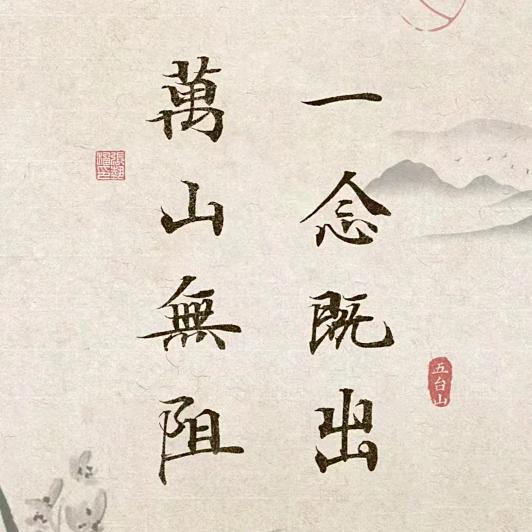 一念既出
萬山無阻
五台山